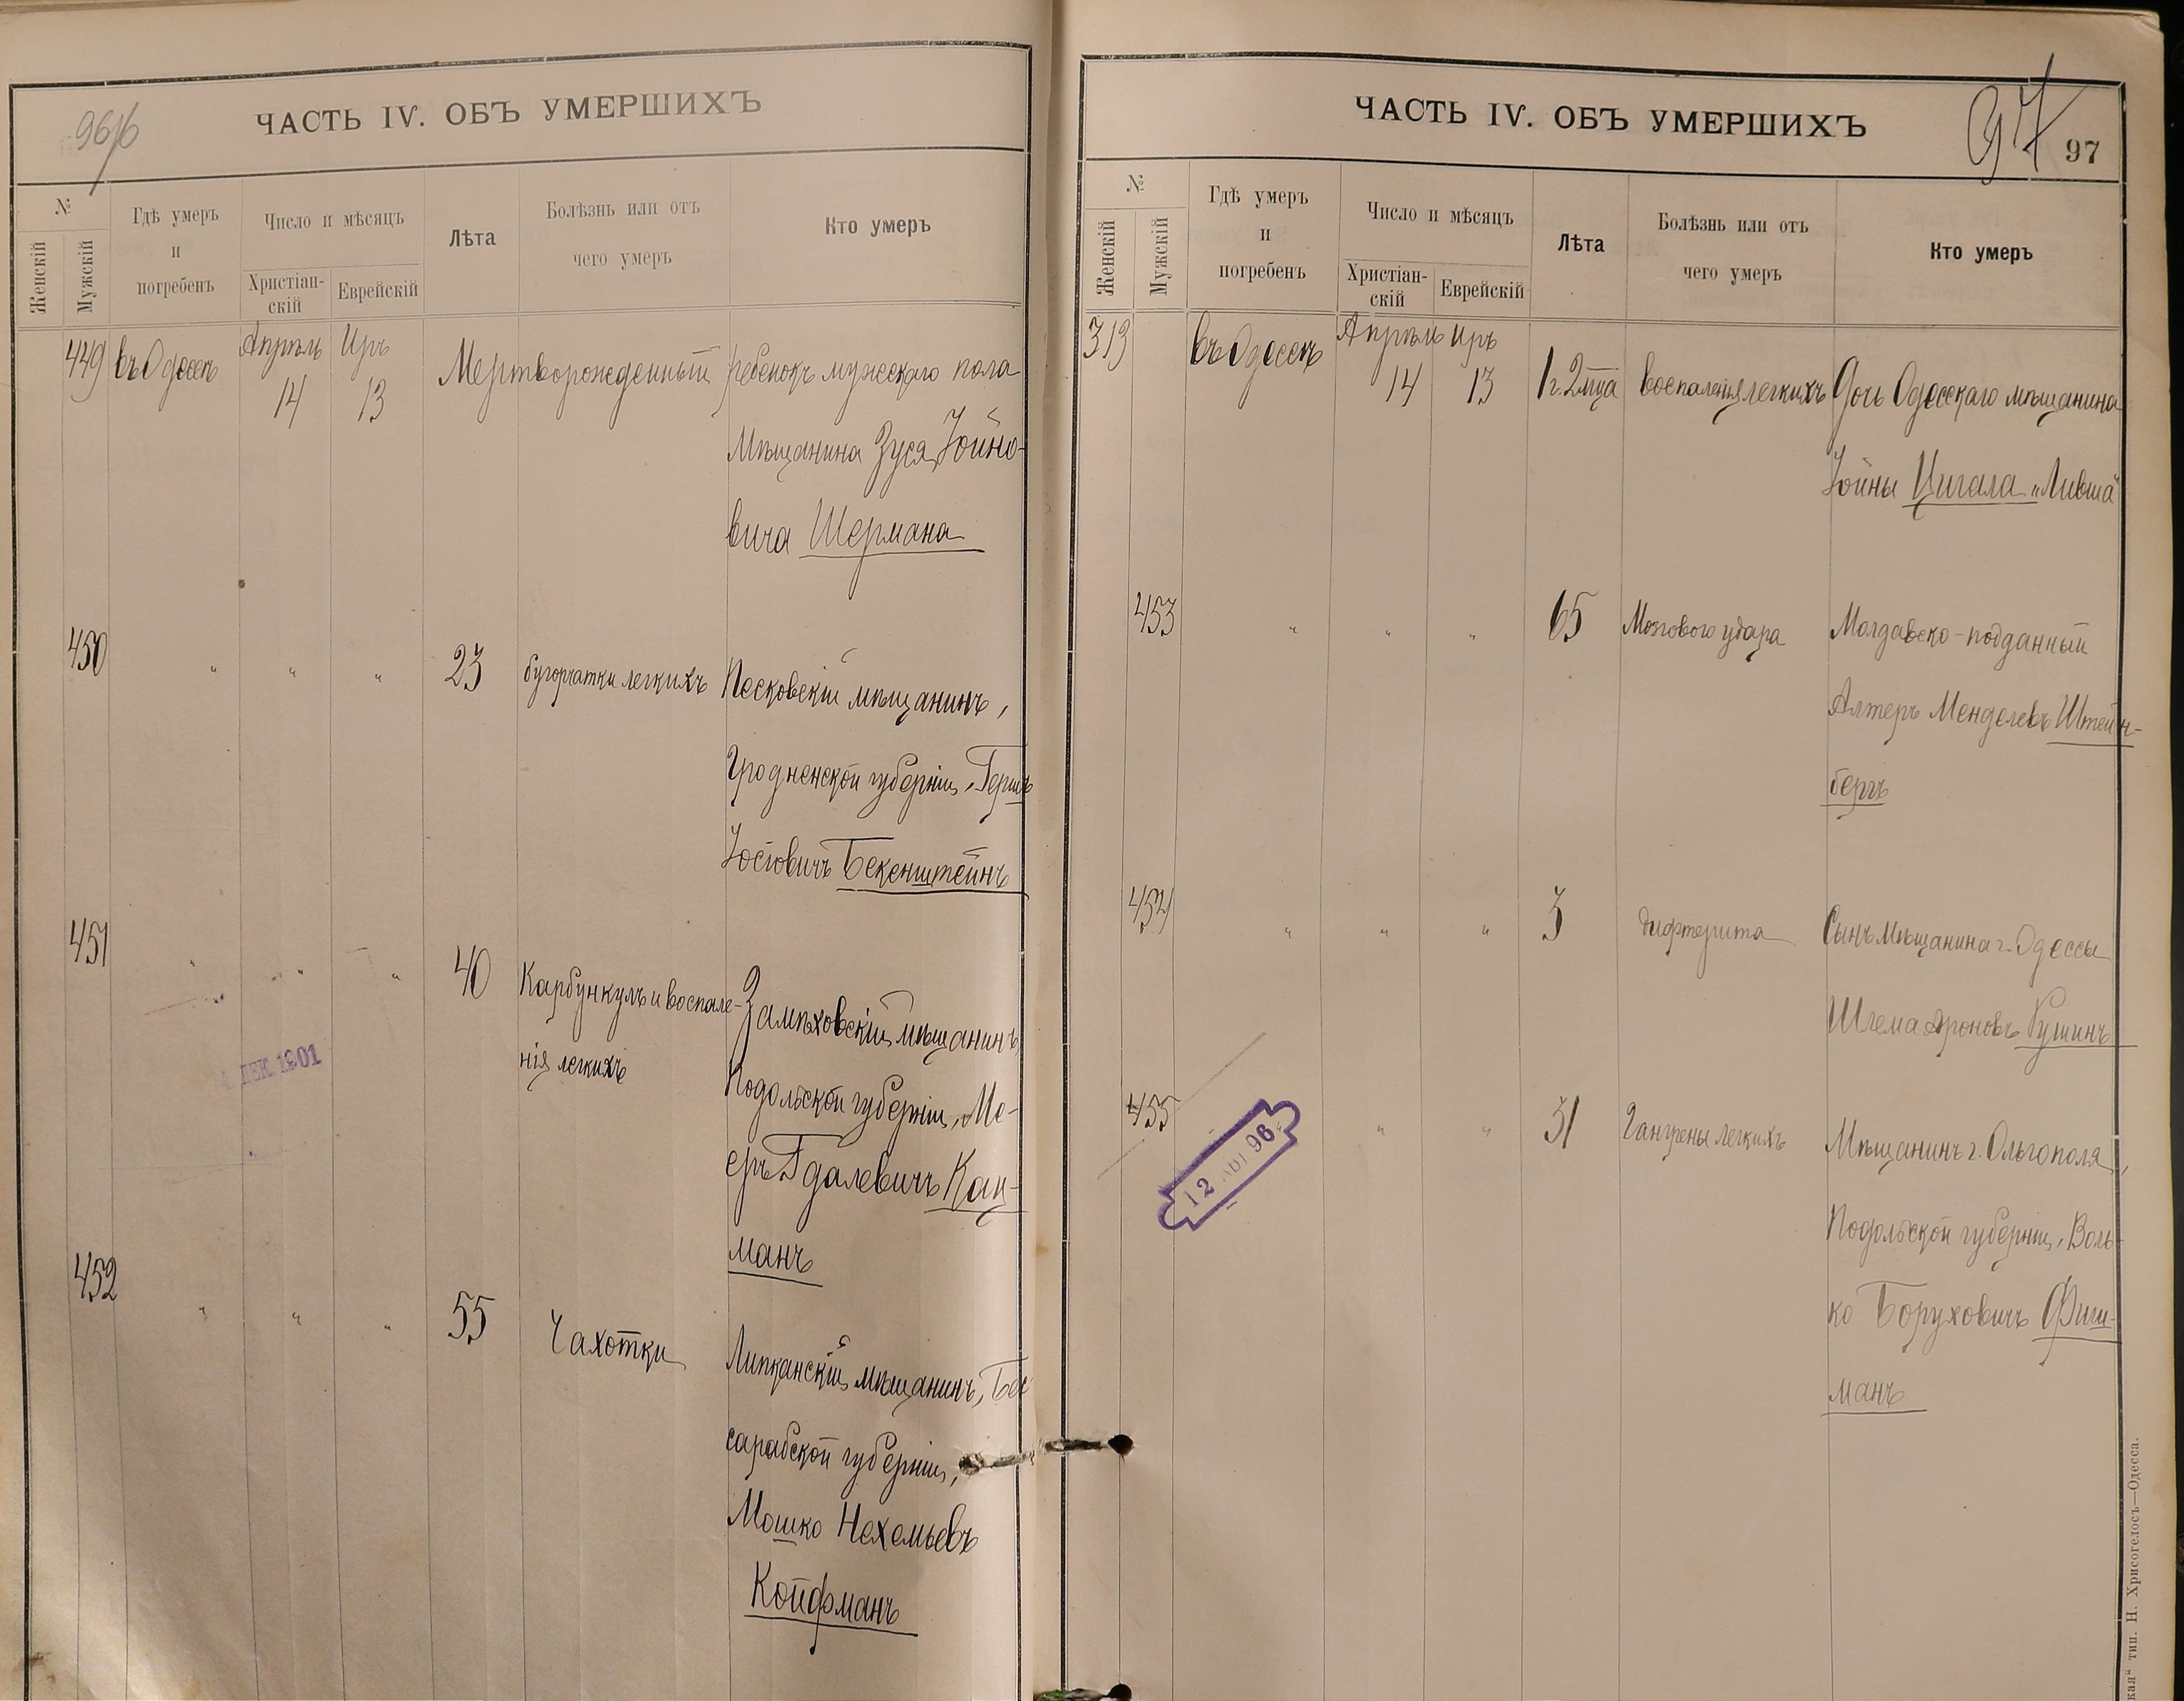 96/б
ЧАСТЬ IV. ОБЪ УМЕРШИХЪ
№
Женскій
Мужскій
Гдѣ умеръ
и
погребенъ
Число и мѣсяцъ
Христіан-
скій
Еврейскій
Лѣта
Болѣзнь или отъ
чего умеръ
Кто умеръ
449 въ Одессѣ Апрѣль 14 Иръ 13 Мертворожденный ребенокъ мужского пола
Мѣщанина Зуся Іойно-
вича Шермана
450 " " " 23 бугорчатки легкихъ Песковскій мѣщанинъ,
Гродненской губерніи, Гершъ
Іосіовичъ Бекенштейнъ
451 " " " 40 Карбункулъ и воспале- Замѣховскій мѣщанинъ
нія легкихъ Подольской губерніи, Ме-
еръ Гдалевичъ Кац-
манъ
ДЕК 1901
452 " " " 55 Чахотки Липканскій мѣщанинъ, Бес
сарабской губерніи,
Мошко Нехемьевъ
Койфманъ
ЧАСТЬ IV. ОБЪ УМЕРШИХЪ
97
97
№
Женскій
Мужскій
Гдѣ умеръ
и
погребенъ
Число и мѣсяцъ
Христіан-
скій
Еврейскій
Лѣта
Болѣзнь или отъ
чего умеръ
Кто умеръ
313 въ Одессѣ Апрѣль 14 Иръ 13 1 г. 2 мца воспаленія легкихъ Дочь Одесскаго мѣщанина
Іойны Цигала „Ливша"
453 " " " 65 Мозгового удара Молдавско-подданный
Алтеръ Менделевъ Штейн-
бергъ
454 " " " 3 дифтерита Сынъ мѣщанина г. Одессы
Шлема Ароновъ
455 " " 31 Гангрены легкихъ Мѣщанинъ г. Ольгополя,
12 96
Подольской губерніи, Воль-
ко Боруховичъ Фиш-
манъ
тип. Н. Хрисогелосъ—Одесса.